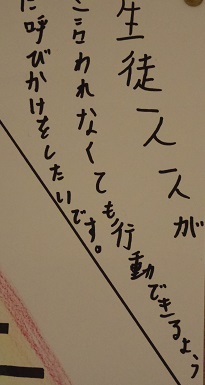 生徒一人一人が
言われなくても行動できるよう
に呼びかけをしたいです。